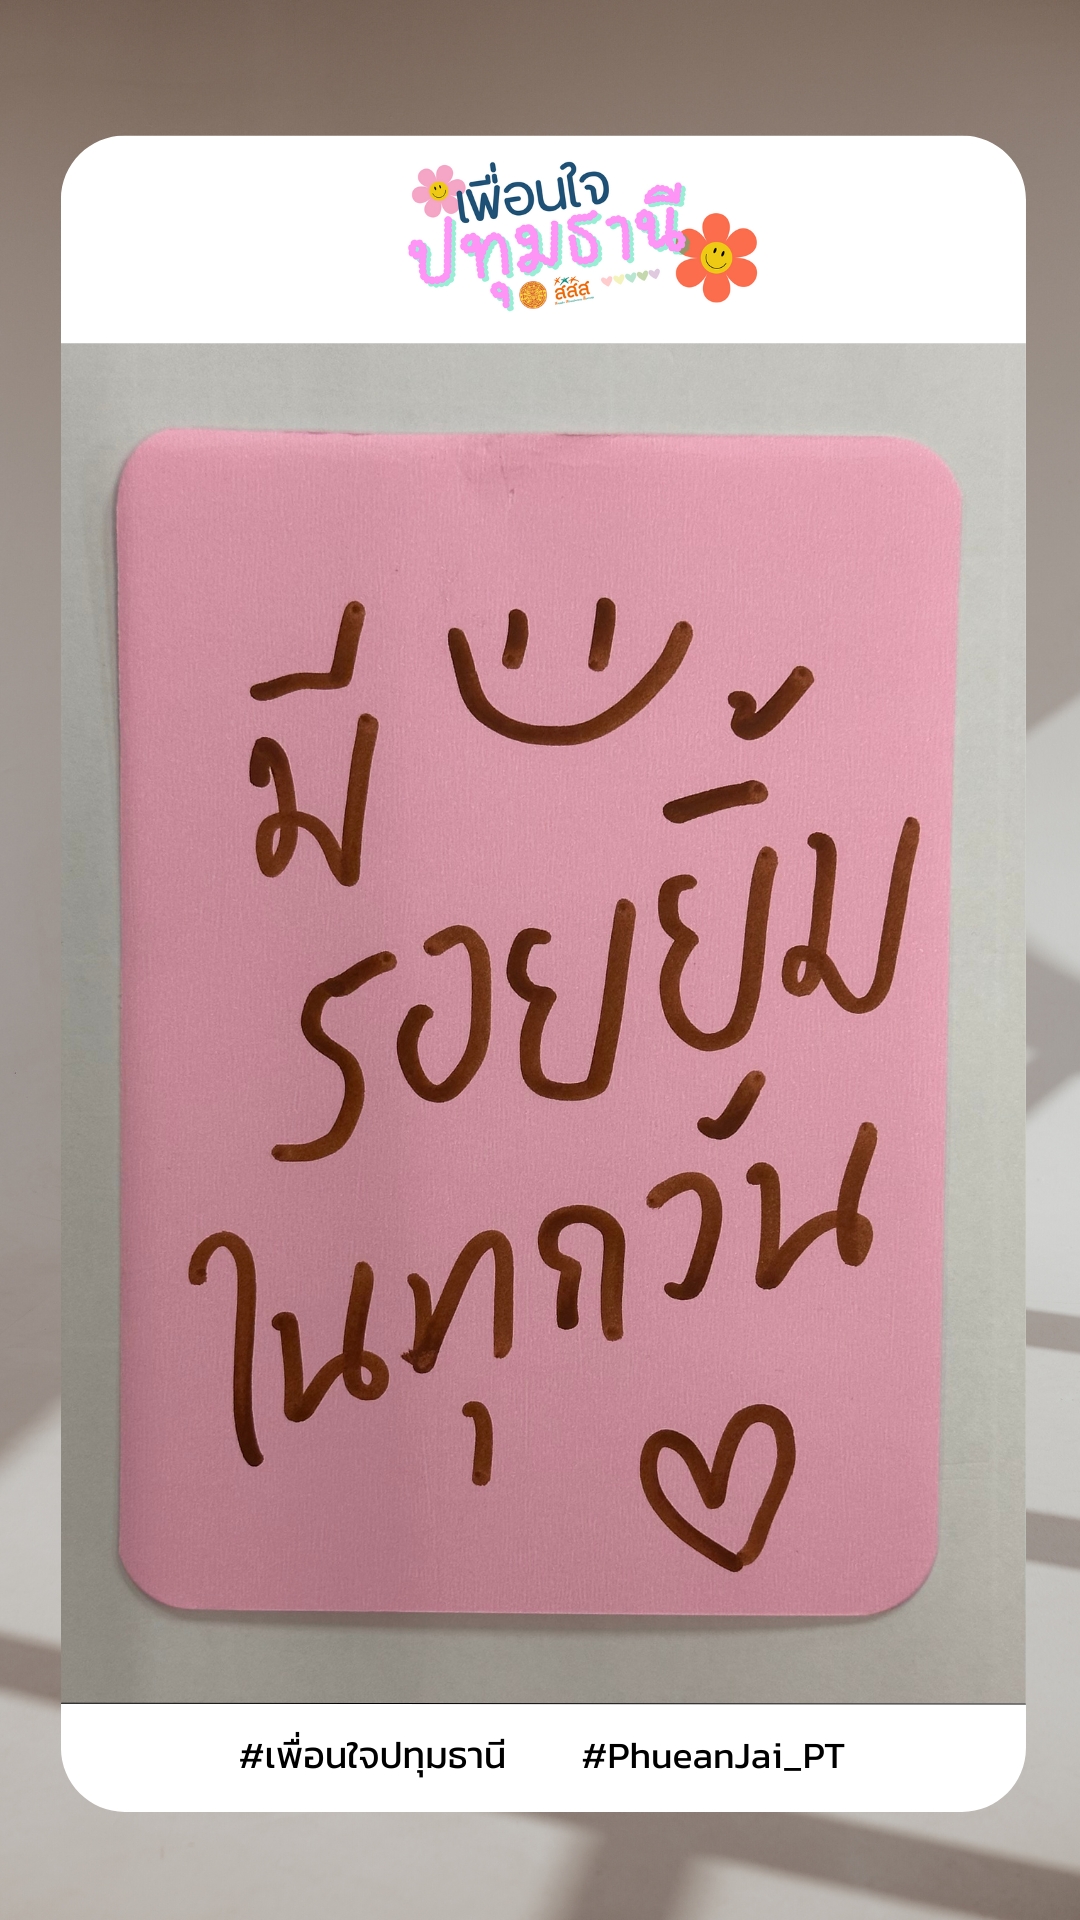 เพื่อนใจ
ปทุมธานี
สสส
มี
รอยยิ้ม
ในทุกวัน
#เพื่อนใจปทุมธานี #PhueanJai_PT